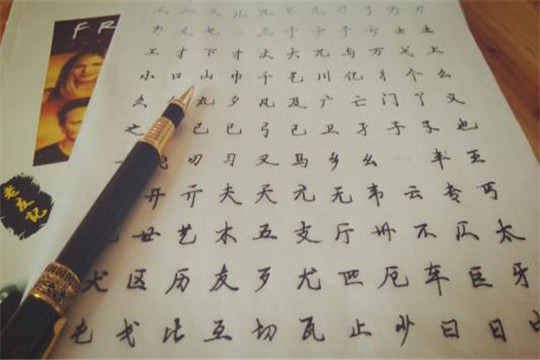 FR
老友记
力又也 三于干亏 士土
工才下寸丈大兀与万弋上
小口山巾千乞川亿彳个么
么 丸夕凡及广亡门丫义
之 己已弓己卫孑子孓也
飞刃习叉马乡幺 丰王
开亓夫天元无韦云专丐
廿艺木五支厅卅不仄太
犬区历友歹尤匹厄车巨牙
屯戈比互切瓦止少曰日